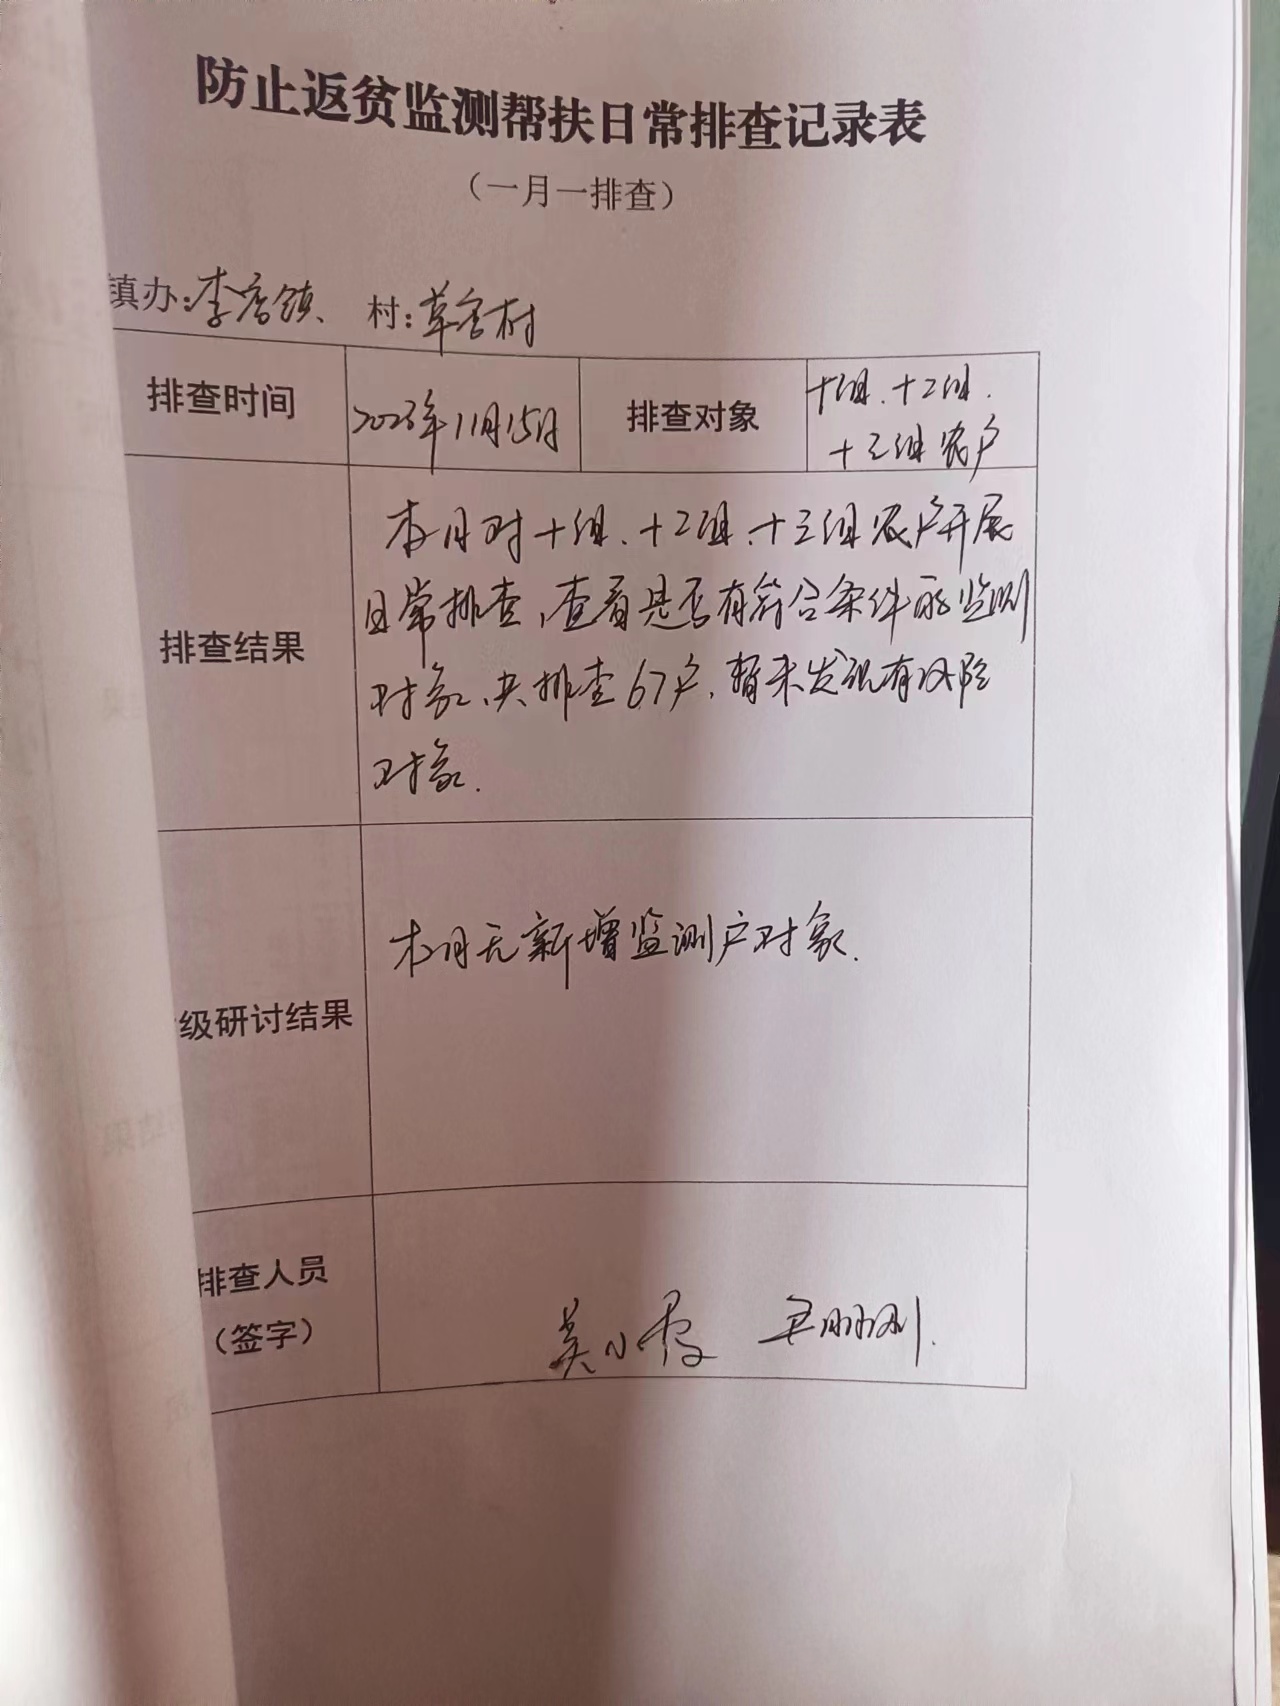 防止返贫监测帮扶日常排查记录表
（一月一排查）
镇办:李店镇、 村:草舍村
排查时间 2023年11月15日 排查对象 十组、十二组、
十三组农户
排查结果
本月对十组、十二组、十三组农户开展
日常排查,查看是否有符合条件的监测
对象、共排查67户,暂未发现有风险
对象.
级研讨结果
本月无新增监测户对象.
排查人员
（签字）